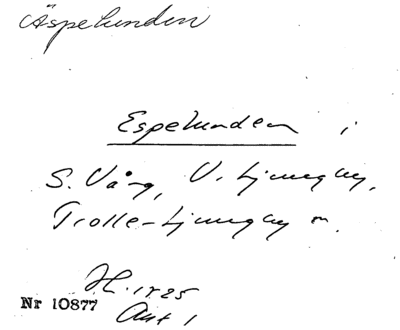 Äspelunden
Espelunden i
S. Vång, V. Ljungby,
Trolle-Ljungby m.
J.H. 1825
Nr 10877
Aut 1